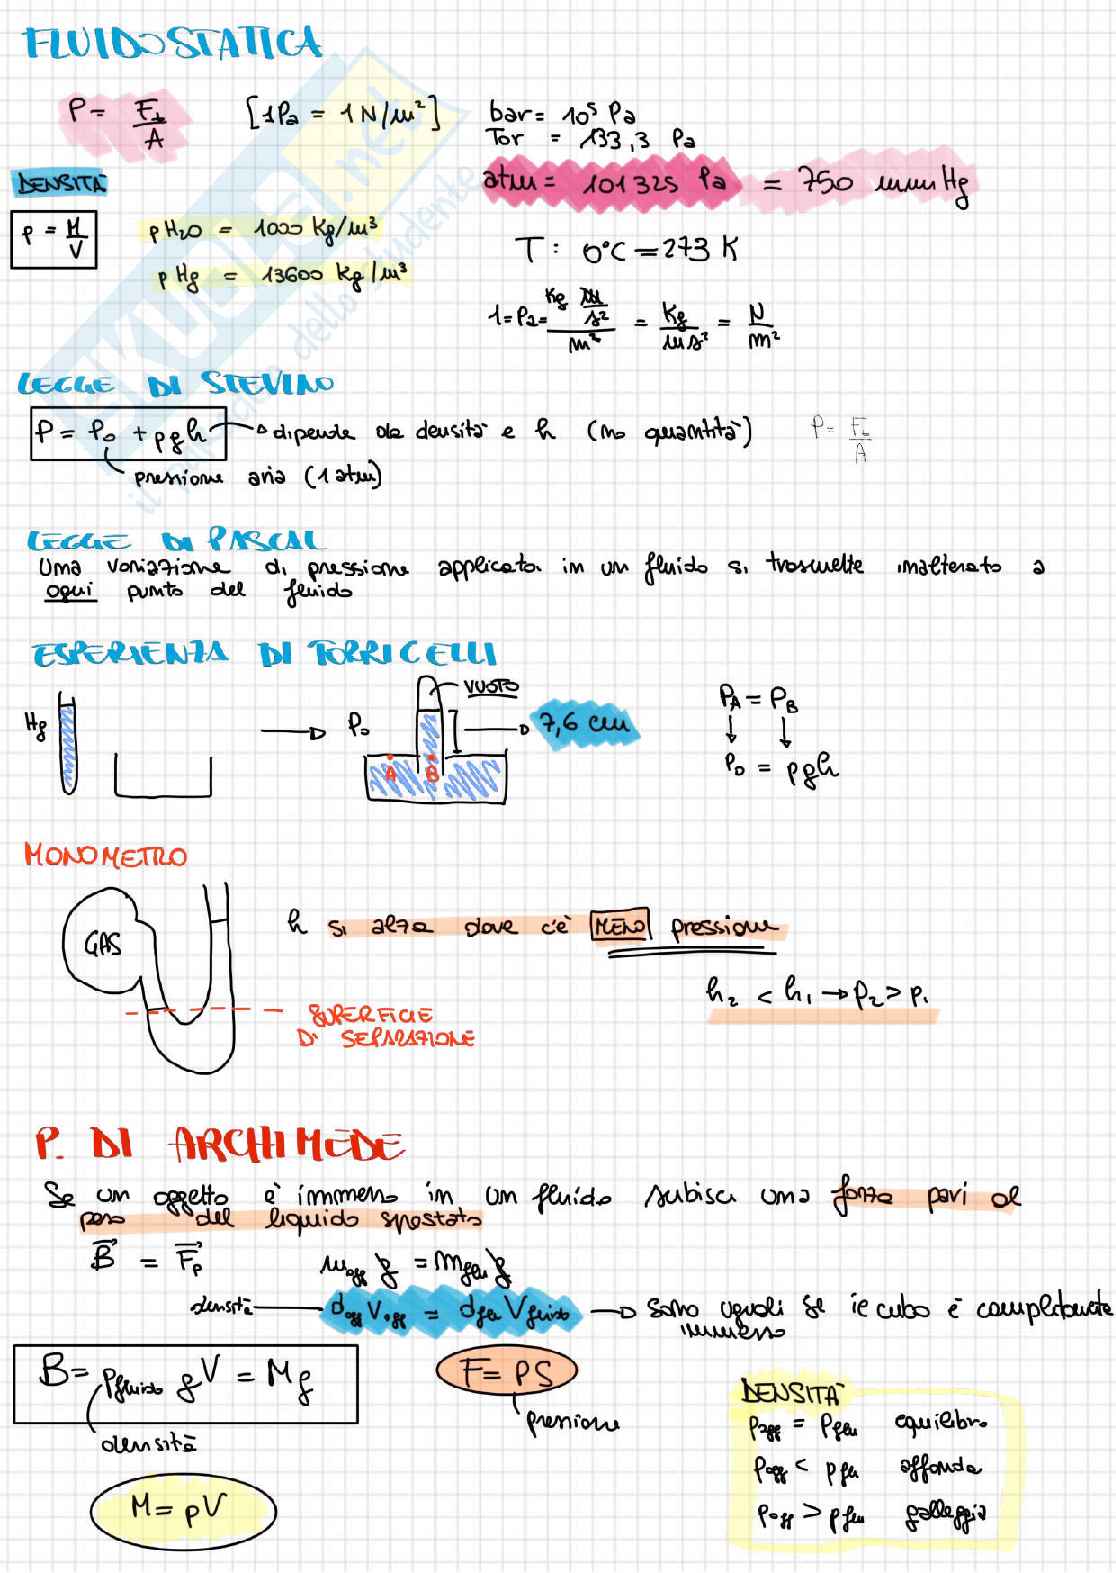 FLUIDOSTATICA
P = F⊥/A [1Pa = 1 N/m²]
bar = 10⁵ Pa
Tor = 133,3 Pa
atm = 101325 Pa = 750 mmHg
DENSITÀ
ρ = M/V
ρ H₂O = 1000 Kg/m³
ρ Hg = 13600 Kg/m³
T: 0°C = 273 K
1 = Pa = Kg m/s² / m² = Kg/ms² = N/m²
LEGGE DI STEVINO
P = P₀ + ρgh → dipende da densità e h (no quantità) P = F⊥/A
pressione aria (1 atm)
LEGGE DI PASCAL
Uma variazione di pressione applicata in un fluido si trasmette inalterato a
ogni punto del fluido
ESPERIENZA DI TORRICELLI
Hg
P₀
VUOTO
7,6 cm
A B
P_A = P_B
P₀ = ρgh
MONOMETRO
GAS
h si alza dove c'è MENO pressione
h₂ < h₁ → P₂ > P₁
SUPERFICIE
DI SEPARAZIONE
P. DI ARCHIMEDE
Se un oggetto è immerso in un fluido subisce una forza pari al
peso del liquido spostato
B = Fp m_ogg g = m_flu g
densità d_ogg V_ogg = d_flu V_fluido → sono uguali se il cubo è completamente
immerso
B = ρ_fluido gV = Mg
densità
F = PS
pressione
M = ρV
DENSITÀ
ρ_ogg = ρ_flu equilibrio
ρ_ogg < ρ_flu affonda
ρ_ogg > ρ_flu galleggia
SKUOLA.net